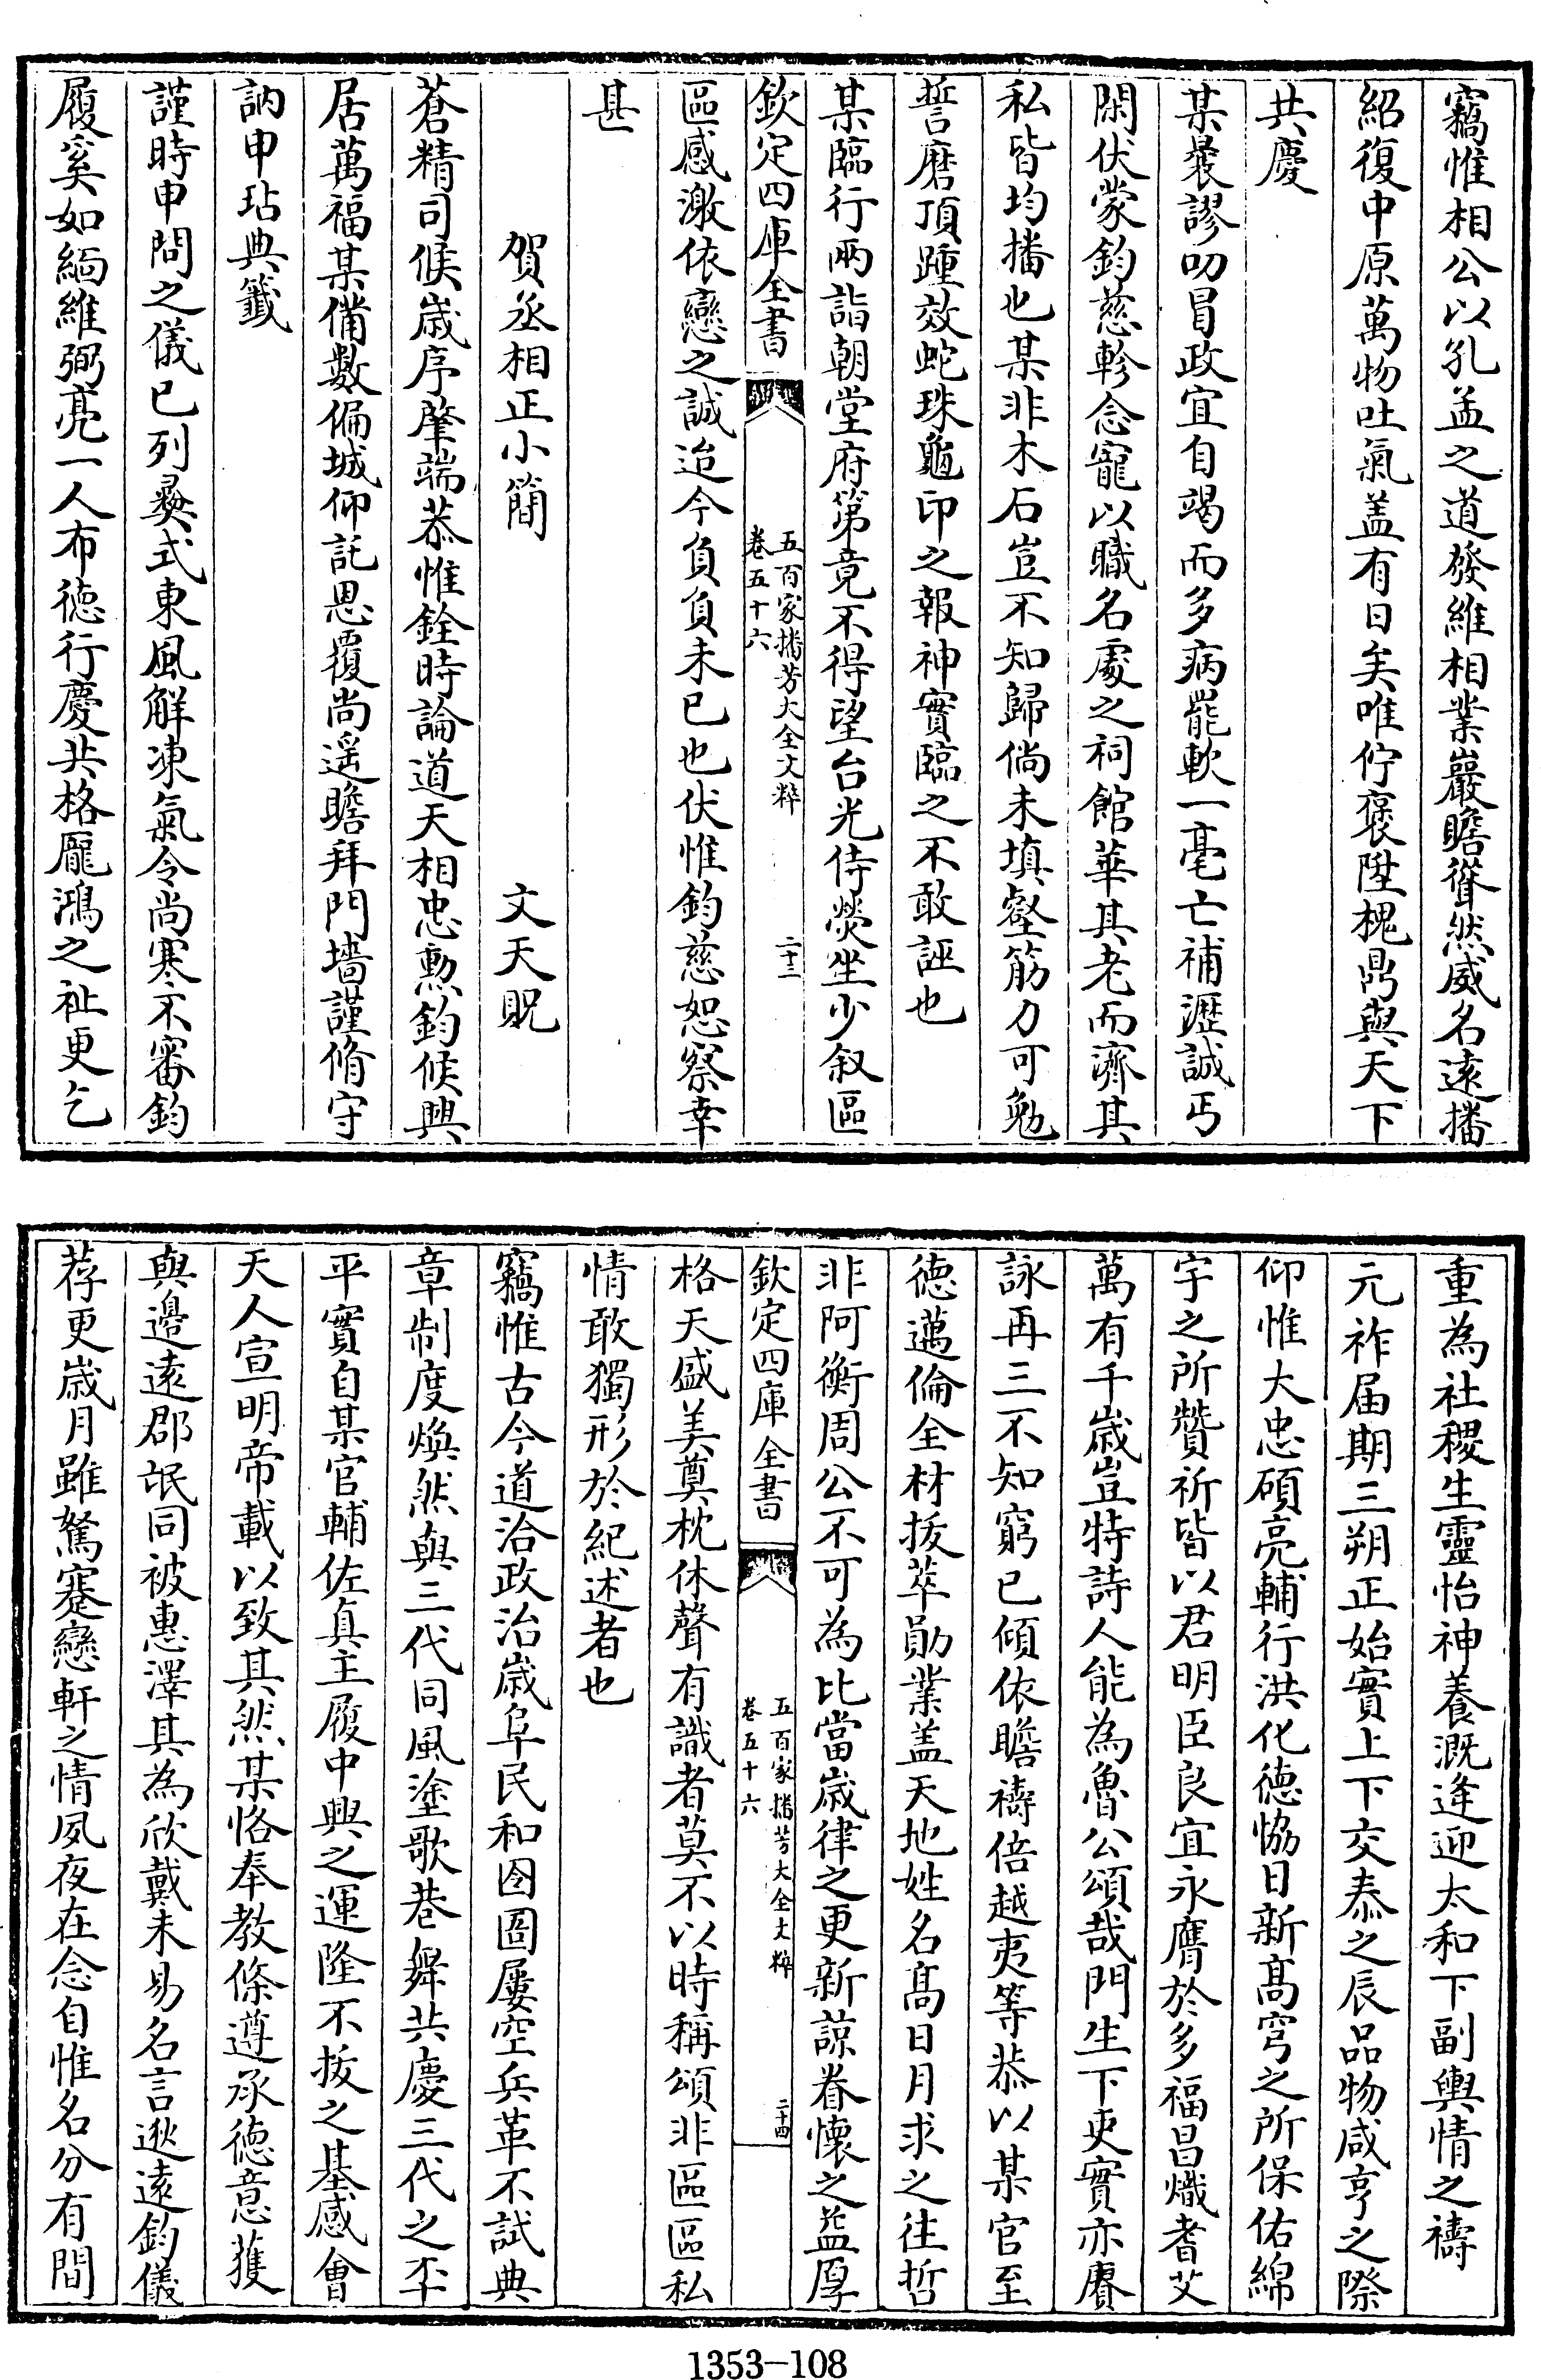 竊惟相公以孔孟之道發維相業巖瞻聳然威名遠播
紹復中原萬物吐氣盖有日矣唯佇褒陞槐鼎與天下
共慶
某㬥謬叨冒政宜自竭而多病罷軟一毫亡補瀝誠丐
閑伏蒙鈞慈軫念寵以職名處之祠館華其老而濟其
私皆均播也某非木石豈不知歸倘未填壑筋力可勉
誓磨頂踵效蛇珠龜印之報神實臨之不敢誣也
某臨行兩詣朝堂府第竟不得望台光侍熒坐少叙區
欽定四庫全書
五百家播芳大全文粹
卷五十六
二十三
區感激依戀之誠迨今負負未已也伏惟鈞慈恕察幸
甚
賀丞相正小簡
文天貺
蒼精司候歲序肇端恭惟銓時論道天相忠勲鈞候興
居萬福某備數偏城仰託恩覆尚遥瞻拜門墻謹脩守
訥申玷典籤
謹時申問之儀已列彛式東風解凍氣令尚寒不審鈞
履奚如緬維弼亮一人布德行慶共格龎鴻之祉更乞
重為社稷生靈怡神養溉逢迎太和下副輿情之禱
元祚届期三朔正始實上下交泰之辰品物咸亨之際
仰惟大忠碩亮輔行洪化德恊日新髙穹之所保佑綿
宇之所贊祈皆以君明臣良宜永膺於多福昌熾耆艾
萬有千歲豈特詩人能為魯公頌哉門生下吏實亦賡
詠再三不知窮已傾依瞻禱倍越夷等恭以某官至
德邁倫全材拔萃勛業盖天地姓名髙日月求之往哲
非阿衡周公不可為比當歲律之更新諒眷懷之益厚
欽定四庫全書
五百家播芳大全文粹
卷五十六
二十四
格天盛美奠枕休聲有識者莫不以時稱頌非區區私
情敢獨形於紀述者也
竊惟古今道洽政治歲阜民和囹圄屢空兵革不試典
章制度煥然與三代同風塗歌巷舞共慶三代之丕
平實自某官輔佐真主履中興之運隆不拔之基感會
天人宣明帝載以致其然某恪奉教條遵承德意獲
與邉遠郡氓同被惠澤其為欣戴未易名言逖遠鈞儀
荐更歲月雖駑蹇戀軒之情夙夜在念自惟名分有間
1353-108